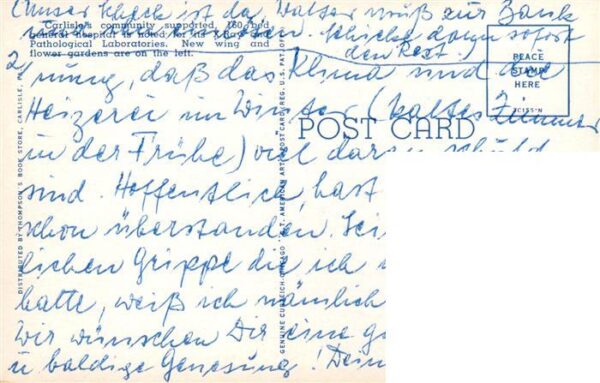 (Unser Scheck ist da, Walter muß zur Bank
Carlisle's community supported, 280 bed
general hospital is noted for its X-ray and
Pathological Laboratories. New wing and
flower gardens are on the left.
schicke dann sofort
den Rest.)
PLACE
STAMP
HERE
3C155-N
POST CARD
2) nung, daß das Klima und die
Heizerei im Winter (kaltes Zimmer
in der Frühe) viel daran schuld
sind. Hoffentlich, hast
schon überstanden. Sei
lichen Grippe die ich
hatte, weiß ich nämlich
Wir wünschen Dir eine g
u baldige Genesung! Dein
DISTRIBUTED BY THOMPSON'S BOOK STORE, CARLISLE, PA.
GENUINE CURTEICH-CHICAGO "ART-CREATION" AMERICAN ART POST CARD (REG. U.S. PAT. OFF.)